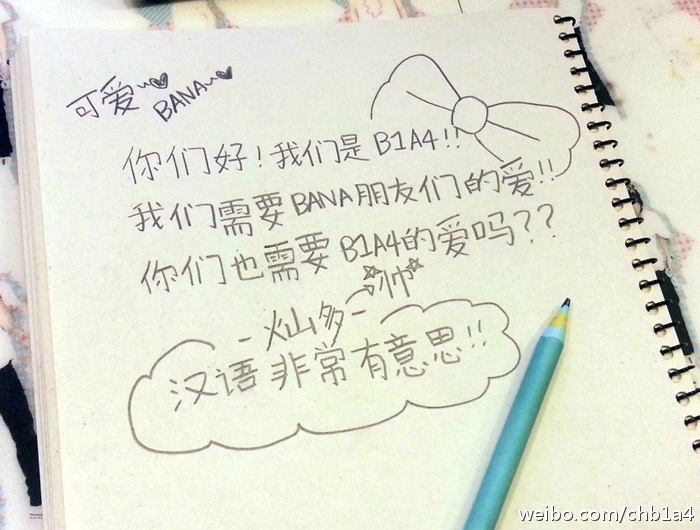 可爱~♥
BANA~♥
你们好!我们是B1A4!!
我们需要BANA朋友们的爱!!
你们也需要B1A4的爱吗??
☆帅☆
-灿多-
汉语非常有意思!!
weibo.com/chb1a4